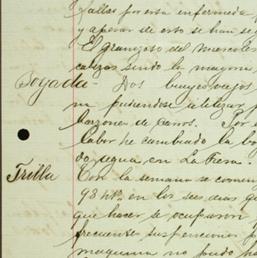 faltas por esta enfermeda
y apesar de esto se han se
El granizo del miercoles
cabezas siendo la mayoria
Boyada - Dos bueyes viejos
no pudiendose utilizar p
barzones de carros. Por e
labor he cambiado la bo
de yegua en La Pressa.
Trilla Con la semana se comen
98 hts. en los seis dias qu
que hacer se ocuparon
frecuentes suspensiones p
maquina no pudo ha